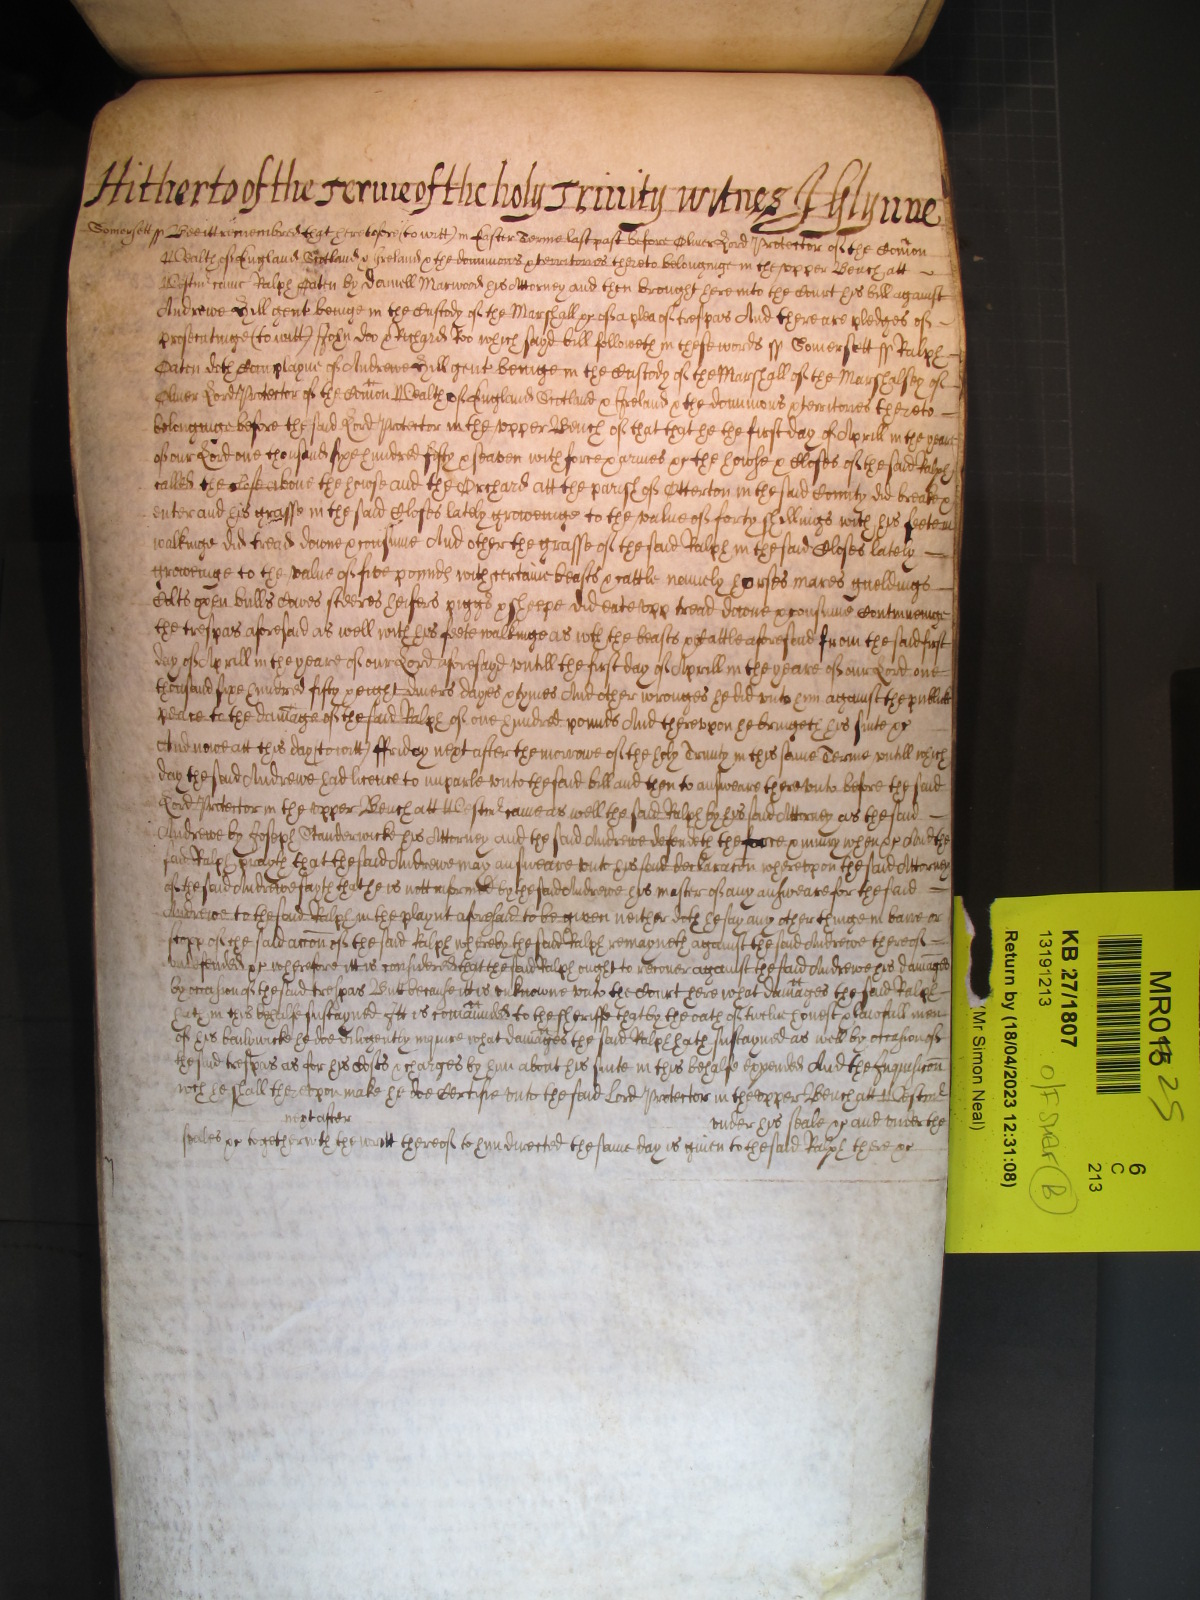 Hitherto of the Terme of the holy Trinity witnes J Glynne
Somersett ss Bee itt remembred that heretofore (to witt) in Easter Terme last past before Oliver Lord Protector of the Comon
Wealth of England Scotland & Ireland & the dominions & territories thereto belonginge in the upper Bench att
Westmr came Ralph Oaten by Daniell Marwood his Attorney and then brought here into the Court his bill against
Andrewe Hill gent beinge in the Custody of the Marshall &c of a plea of trespas And there are pledges of
prosecutinge (to witt) John Doo & Richard Roo which sayd bill followeth in these words ss Somersett ss Ralph
Oaten doth Complayne of Andrewe Hill gent beinge in the Custody of the Marshall of the Marshalsey of
Oliver Lord Protector of the Comon Wealth of England Scotland & Ireland & the dominions & territories thereto
belonginge before the said Lord Protector in the upper Bench of that that he the first day of Aprill in the yeare
of our Lord one thousand sixe hundred fifty & seaven with force & armes &c the howse & Closes of the said Ralph
called the close above the howse and the Orchard att the parish of Otterton in the said County did breake &
enter and his grasse in the said Closes lately groweinge to the value of forty shillings with his feete in
walkinge did tread downe & consume And other the grasse of the said Ralph in the said Closes lately
groweinge to the value of five pounds with certaine beasts & cattle namely horses mares gueldings
Colts oxen bulls Cowes steeres heifers piggs & sheepe did eate upp tread downe & consume Contynueinge
the trespas aforesaid as well with his feete walkinge as with the beasts & Cattle aforesaid from the said first
day of Aprill in the yeare of our Lord aforesayd untill the first day of Aprill in the yeare of our Lord one
thousand sixe hundred fifty & eight divers dayes & tymes And other wronges he did unto him against the publike
peace to the damage of the said Ralph of one hundred pounds And thereupon he bringeth his suite &c
And nowe att this day (to witt) ffriday next after the morrowe of the holy Trinity in this same Terme untill which
day the said Andrewe had licence to imparle unto the said bill and then to answeare thereunto before the said
Lord Protector in the upper Bench att Westmr came as well the said Ralph by his said Attorney as the said
Andrewe by Joseph Standerwicke his Attorney and the said Andrewe defendeth the force & iniury when &c And the
said Ralph prayeth that the said Andrewe may answeare unto his said declaracon whereupon the said Attorney
of the said Andrewe sayth that he is nott informed by the said Andrewe his master of any answeare for the said
Andrewe to the said Ralph in the playnt aforesaid to be given neither doth he say any other thinge in barre or
stopp of the said accon of the said Ralph whereby the said Ralph remayneth against the said Andrewe thereof
undefended &c wherefore itt is considered that the said Ralph ought to recover against the said Andrewe his damages
by occasion of the said trespas But because itt is unknowne unto the Court here what damages the said Ralph
hath in this behalfe sustayned Itt is comaunded to the sheriffe that by the oath of twelve honest & lawfull men
of his bailiwicke he doe diligently inquire what damages the said Ralph hath sustayned as well by occasion of
the said trespas as for his Costs & charges by him about his suite in this behalfe expended And the Inquisicon
wch he shall thereupon make he doe Certifie unto the said Lord Protector in the upper Bench att Westmr
next after under his seale &c and under the
seales &c together with the writt thereof to him directed the same day is given to the said Ralph there &c
MR015 25
6
C
213
KB 27/1807
13191213
Return by (18/04/2023 12:31:08)
(Mr Simon Neal)
B